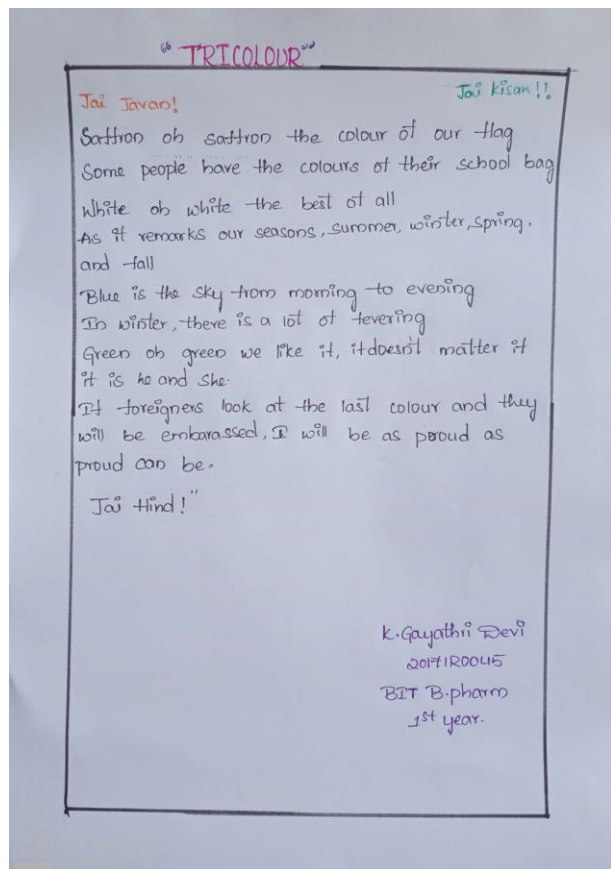 "TRICOLOUR"
Jai Javan!
Jai Kisan!!
Saffron oh saffron the colour of our flag
Some people have the colours of their school bag
White oh white the best of all
As it remarks our seasons, summer, winter, spring.
and fall
Blue is the sky from morning to evening
In winter, there is a lot of fevering
Green oh green we like it, it doesn't matter if
it is he and she.
If foreigners look at the last colour and they
will be embarassed, I will be as proud as
proud can be.
Jai Hind!"
K. Gayathri Devi
20171R0045
BIT B.pharm
1st year.